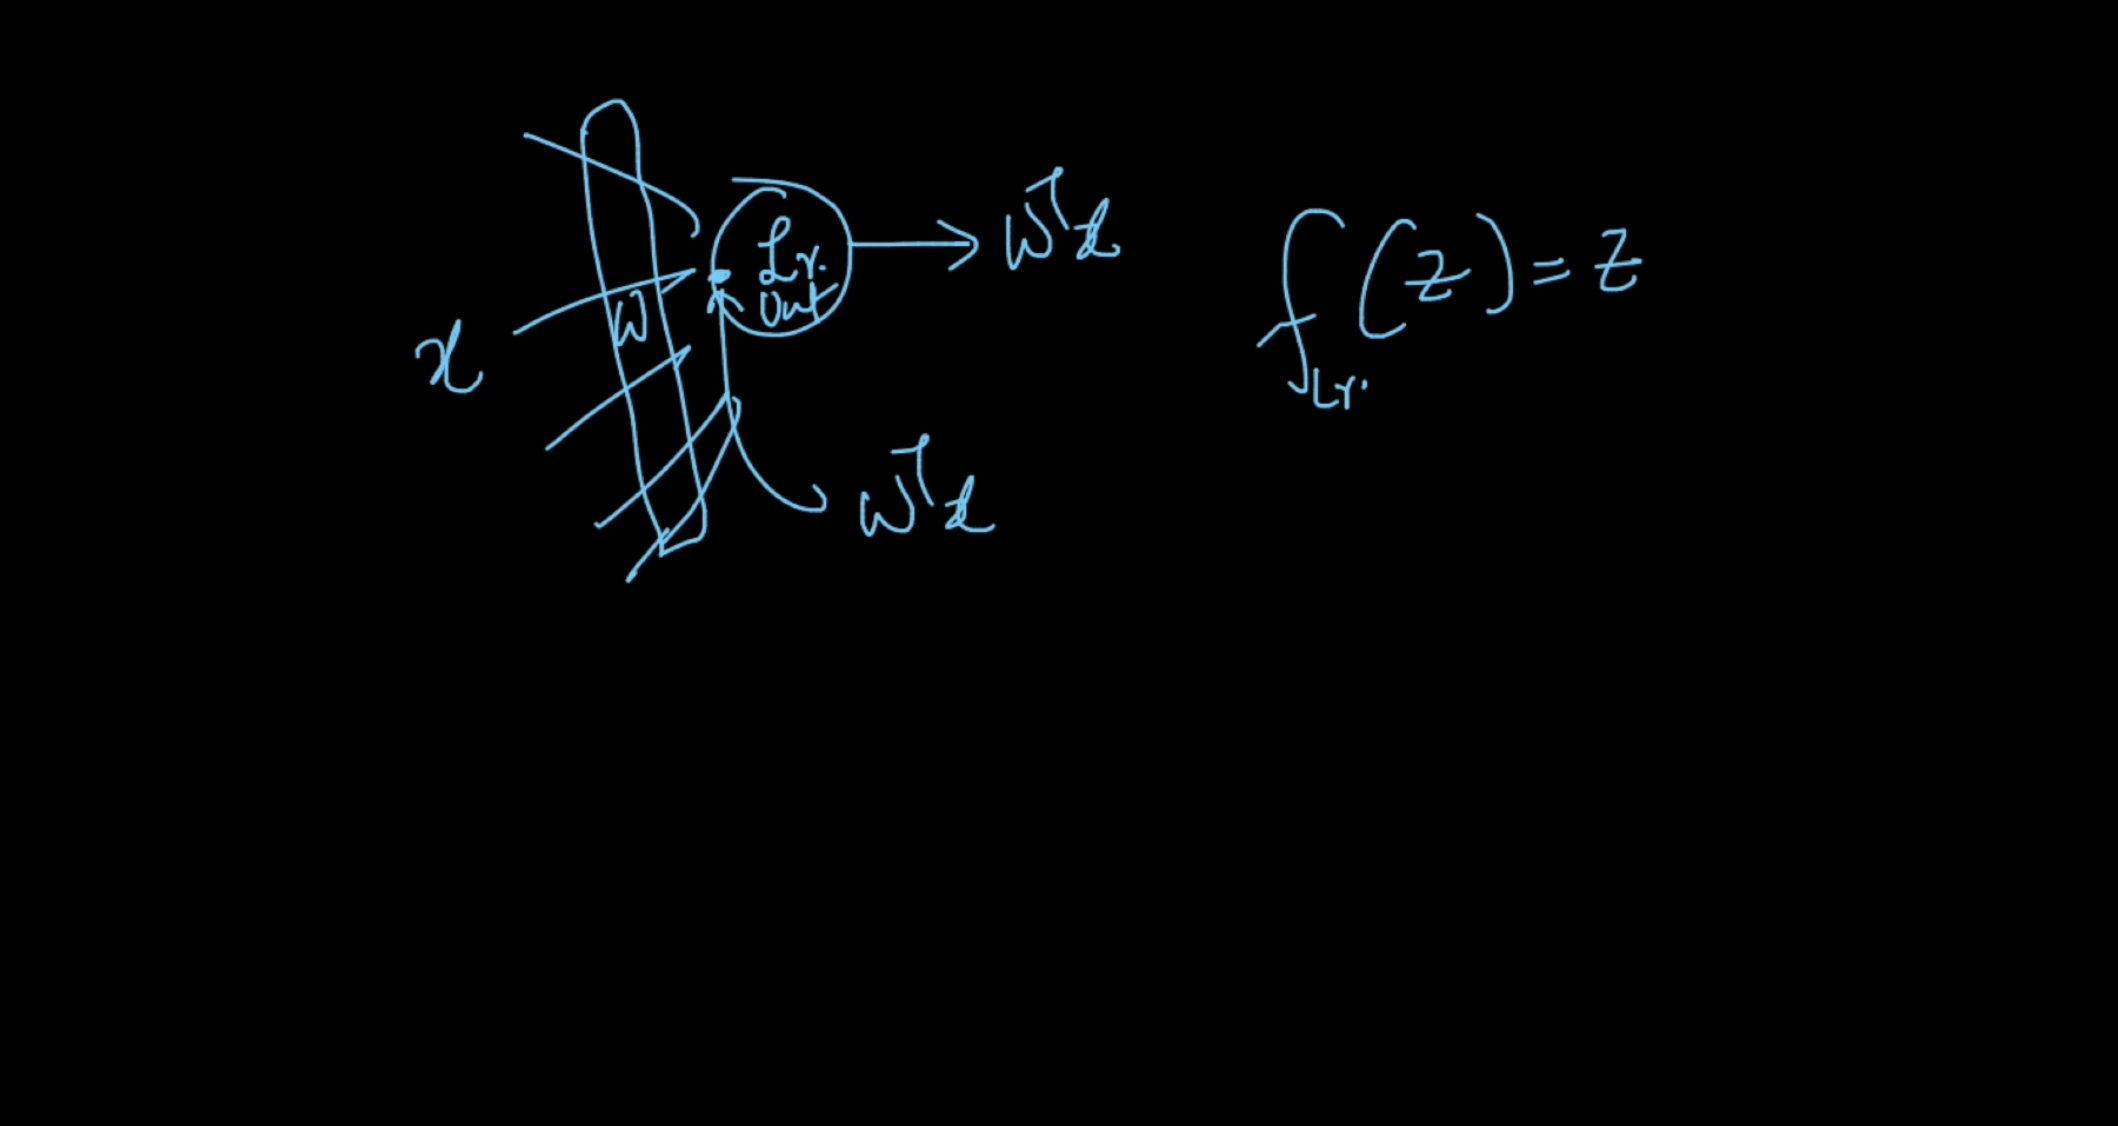 x
W
Lr.
Out
W^T x
W^T x
f_Lr. (z) = z